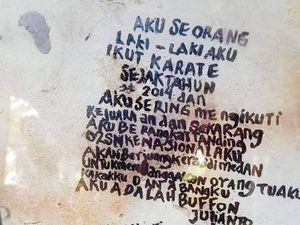 AKU SEORANG
LAKI-LAKI AKU
IKUT KARATE
SEJAK TAHUN
2014 dan
AKU SERING mENgiKUTi
KEJUARAAN dan SEKARANG
AKU BERANGKAT
O2SN KE NASIONAL AKU
AKAN BERJUANG KERAS di mEdAN
UNTUK mEmBANGGAKAN ORANG TUAKU
KAKAKKU DAN ABANGKU
AKU ADALAH BUFFON
JULIANTO